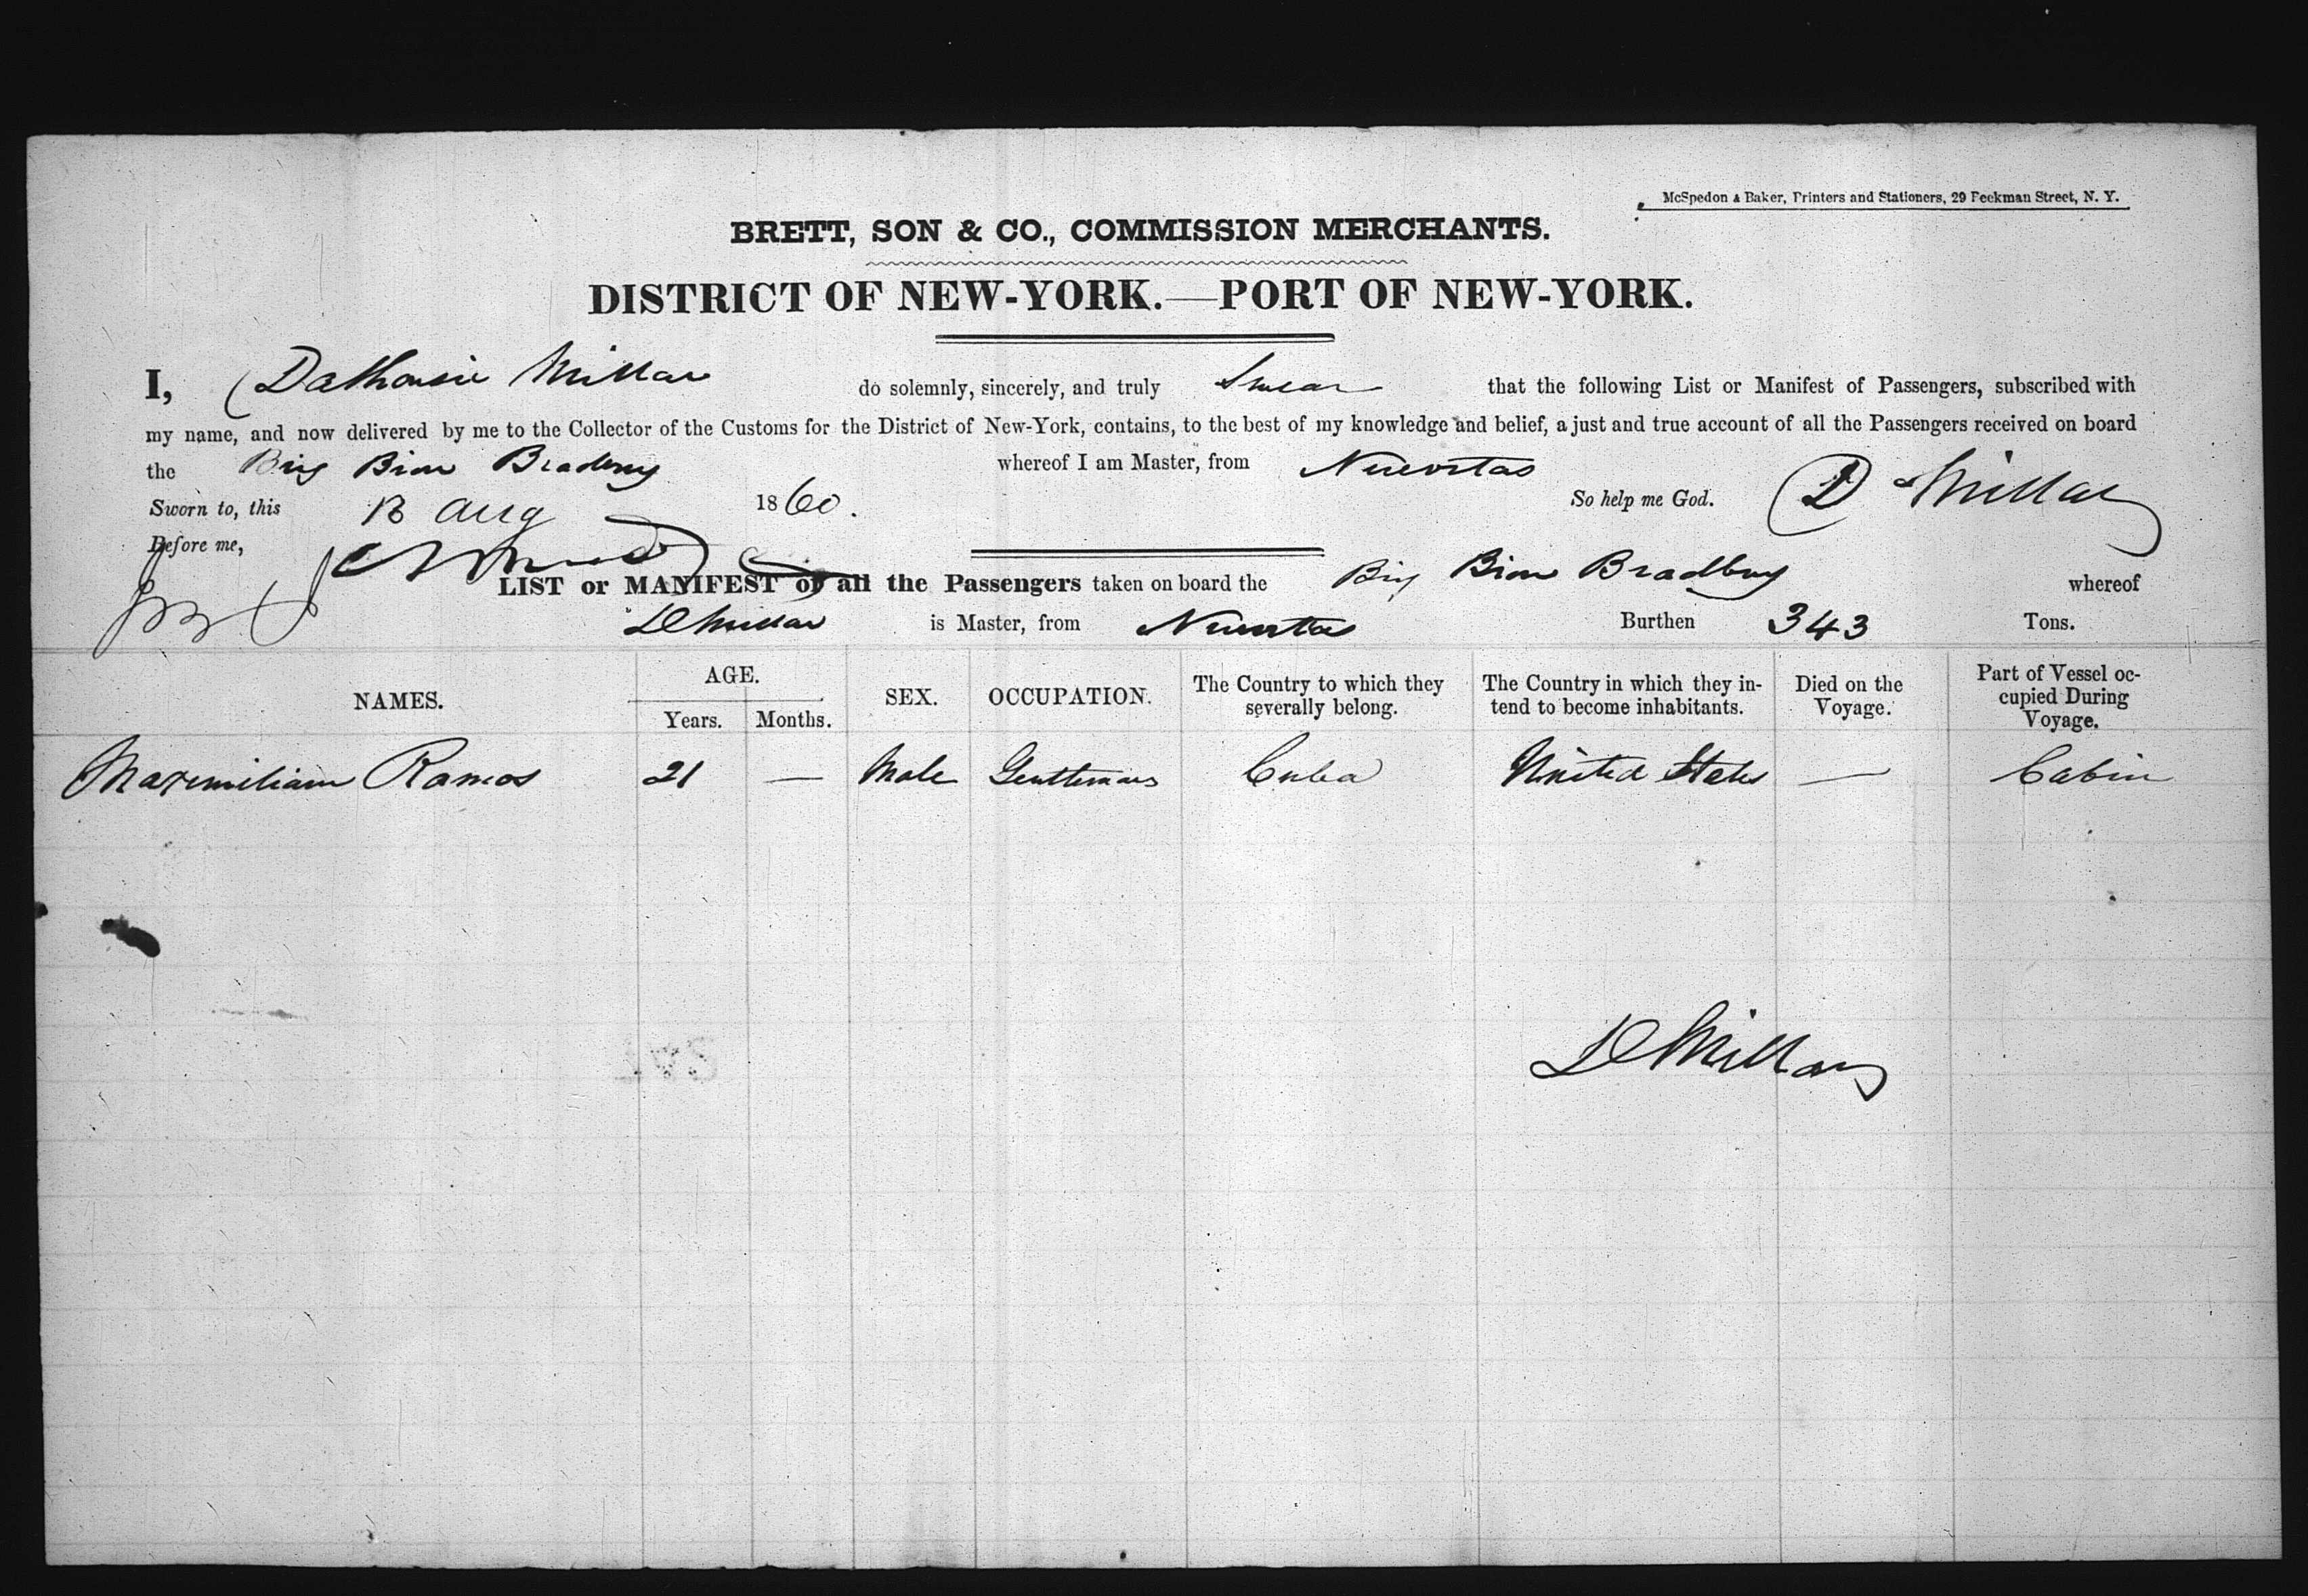 McSpedon & Baker, Printers and Stationers, 29 Beekman Street, N. Y.
BRETT, SON & CO., COMMISSION MERCHANTS.
DISTRICT OF NEW-YORK.—PORT OF NEW-YORK.
I, Dalhousie Millar do solemnly, sincerely, and truly Swear that the following List or Manifest of Passengers, subscribed with
my name, and now delivered by me to the Collector of the Customs for the District of New-York, contains, to the best of my knowledge and belief, a just and true account of all the Passengers received on board
the Brig Bion Bradbury whereof I am Master, from Nuevitas
Sworn to, this 13 Aug 1860. So help me God. D Millar
Before me,
LIST or MANIFEST of all the Passengers taken on board the Brig Bion Bradbury whereof
D Millar is Master, from Nuevitas Burthen 343 Tons.
NAMES. AGE. Years. Months. SEX. OCCUPATION. The Country to which they severally belong. The Country in which they intend to become inhabitants. Died on the Voyage. Part of Vessel occupied During Voyage.
Maximiliam Ramos 21 — Male Gentleman Cuba United States — Cabin
D Millar